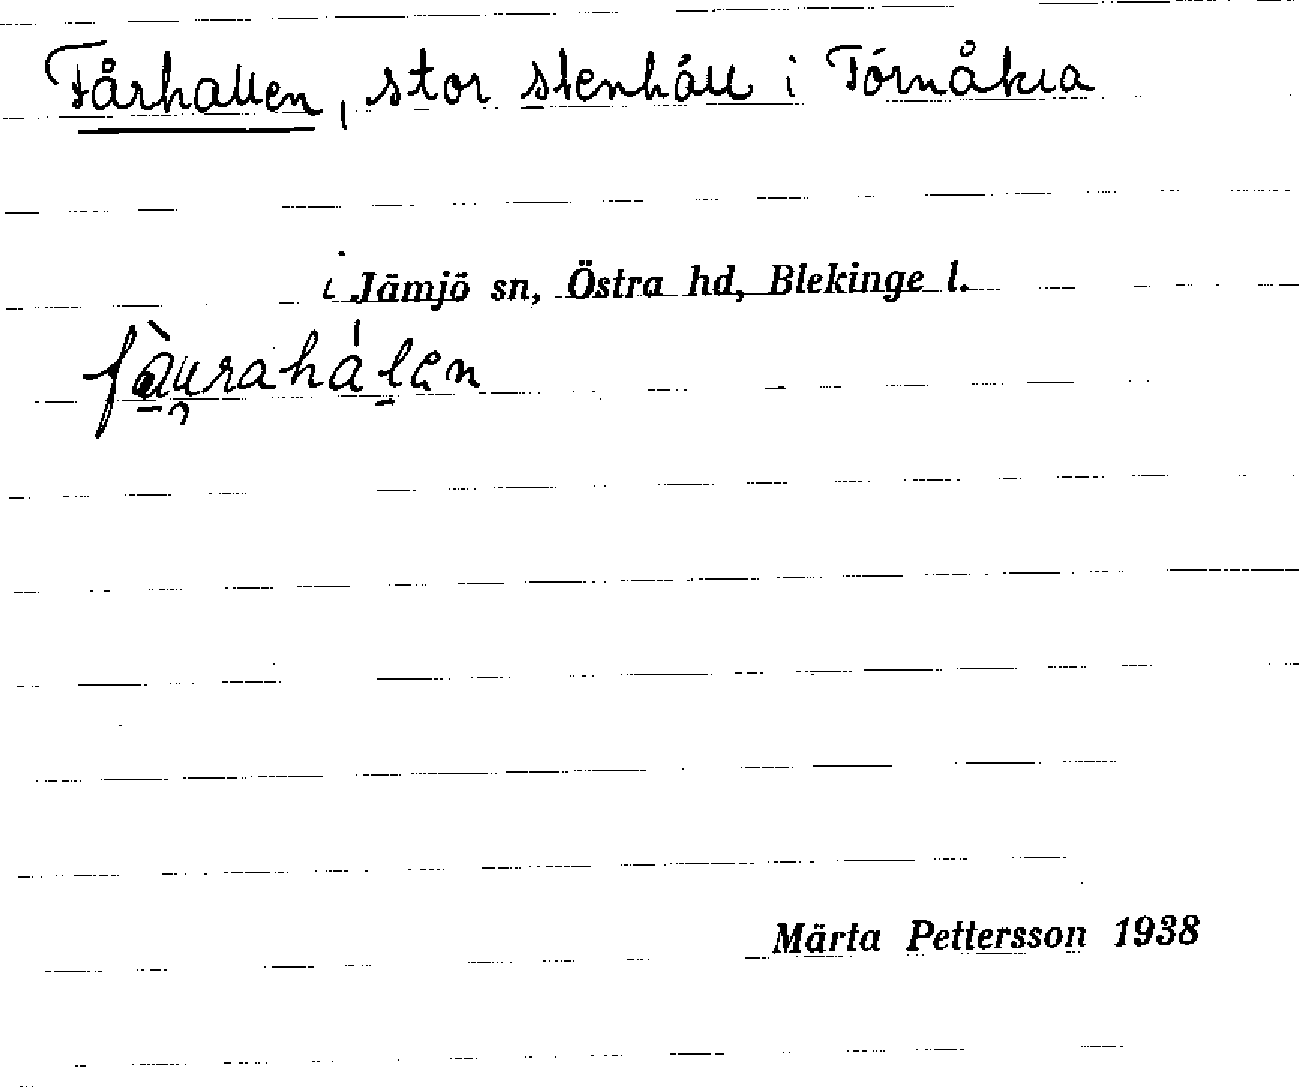 Fårhallen, stor stenháll i Tórnåkra
i Jämjö sn, Östra hd, Blekinge l.
fàu̯raháḻen
Märta Pettersson 1938